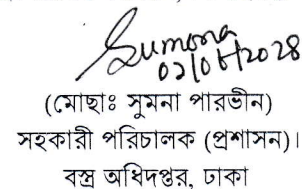 Sumona
02/06/2024
(মোছাঃ সুমনা পারভীন)
সহকারী পরিচালক (প্রশাসন)।
বস্ত্র অধিদপ্তর, ঢাকা